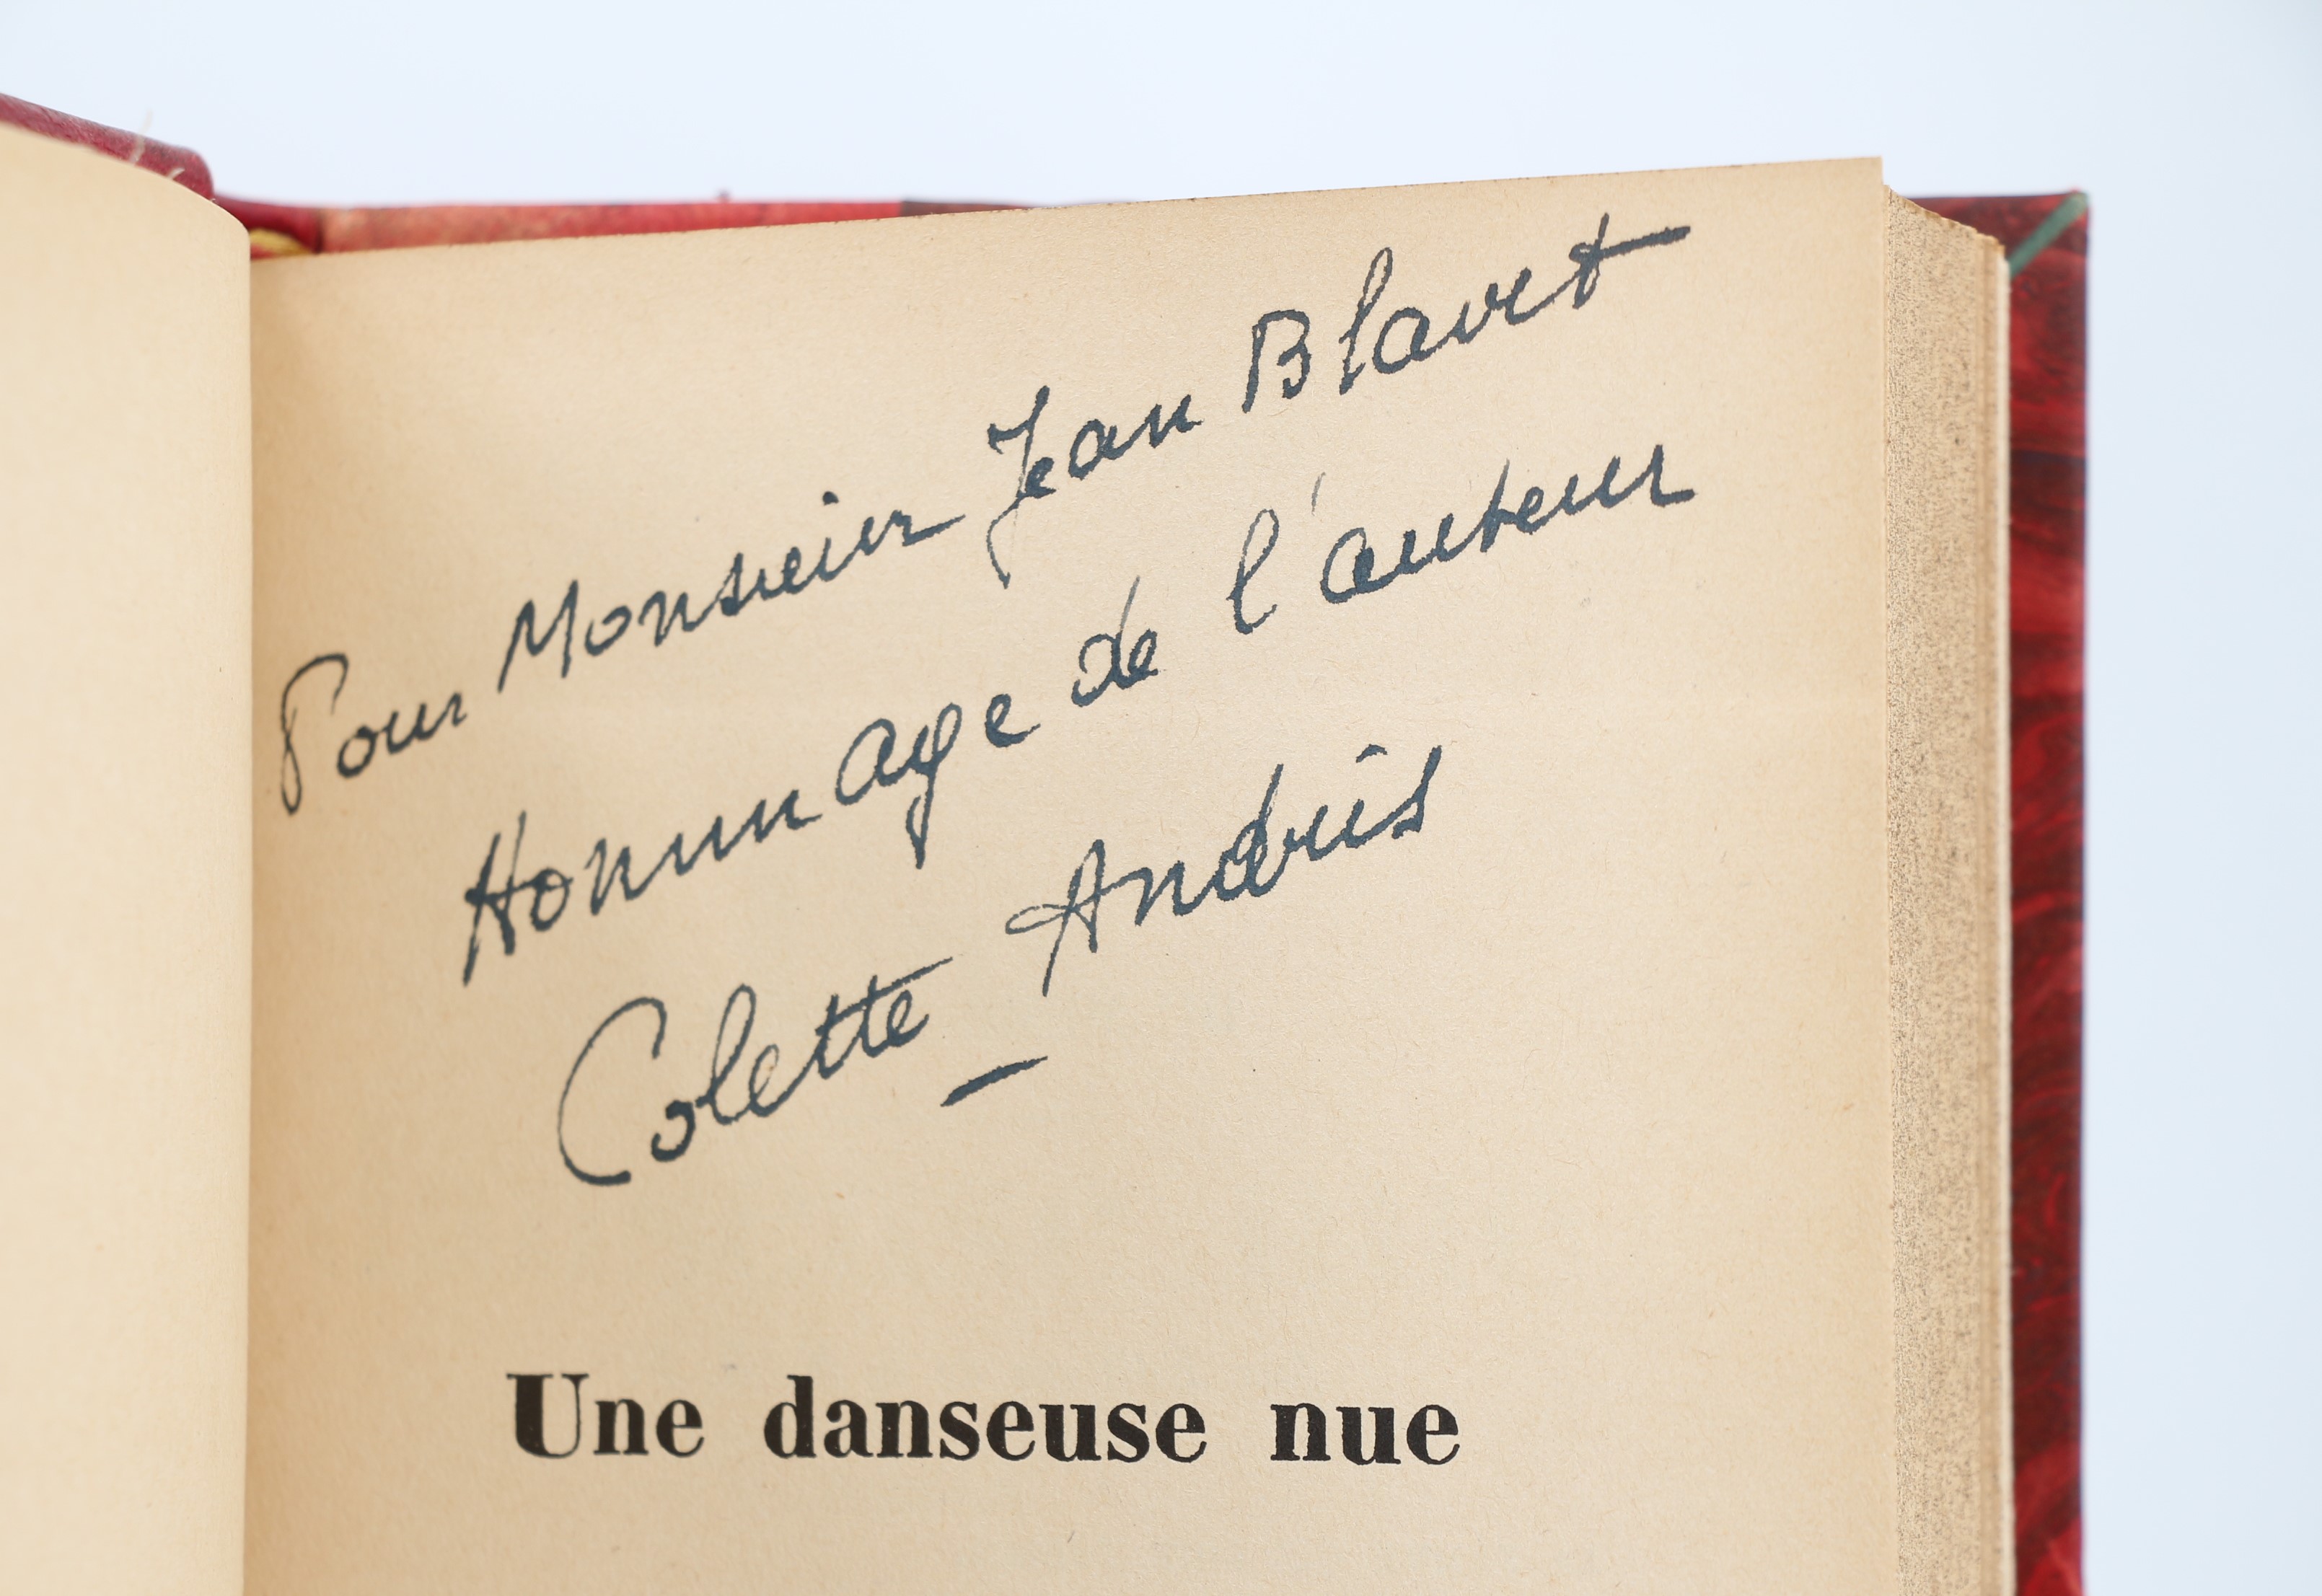 Pour Monsieur Jean Blavet
Hommage de l'auteur
Colette Andris
Une danseuse nue